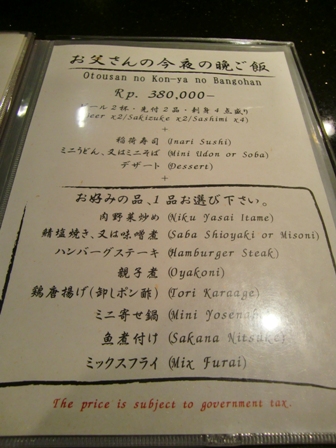 お父さんの今夜の晩ご飯
Otousan no Kon-ya no Bangohan
Rp. 380,000-
ビール2杯・先付2品・刺身4点盛り
(Beer x2/Sakizuke x2/Sashimi x4)
+
稲荷寿司 (Inari Sushi)
ミニうどん、又はミニそば (Mini Udon or Soba)
デザート (Dessert)
+
お好みの品、1品お選び下さい。
肉野菜炒め (Niku Yasai Itame)
鯖塩焼き、又は味噌煮 (Saba Shioyaki or Misoni)
ハンバーグステーキ (Hamburger Steak)
親子煮 (Oyakoni)
鶏唐揚げ(卸しポン酢) (Tori Karaage)
ミニ寄せ鍋 (Mini Yosenabe)
魚煮付け (Sakana Nitsuke)
ミックスフライ (Mix Furai)
The price is subject to government tax.